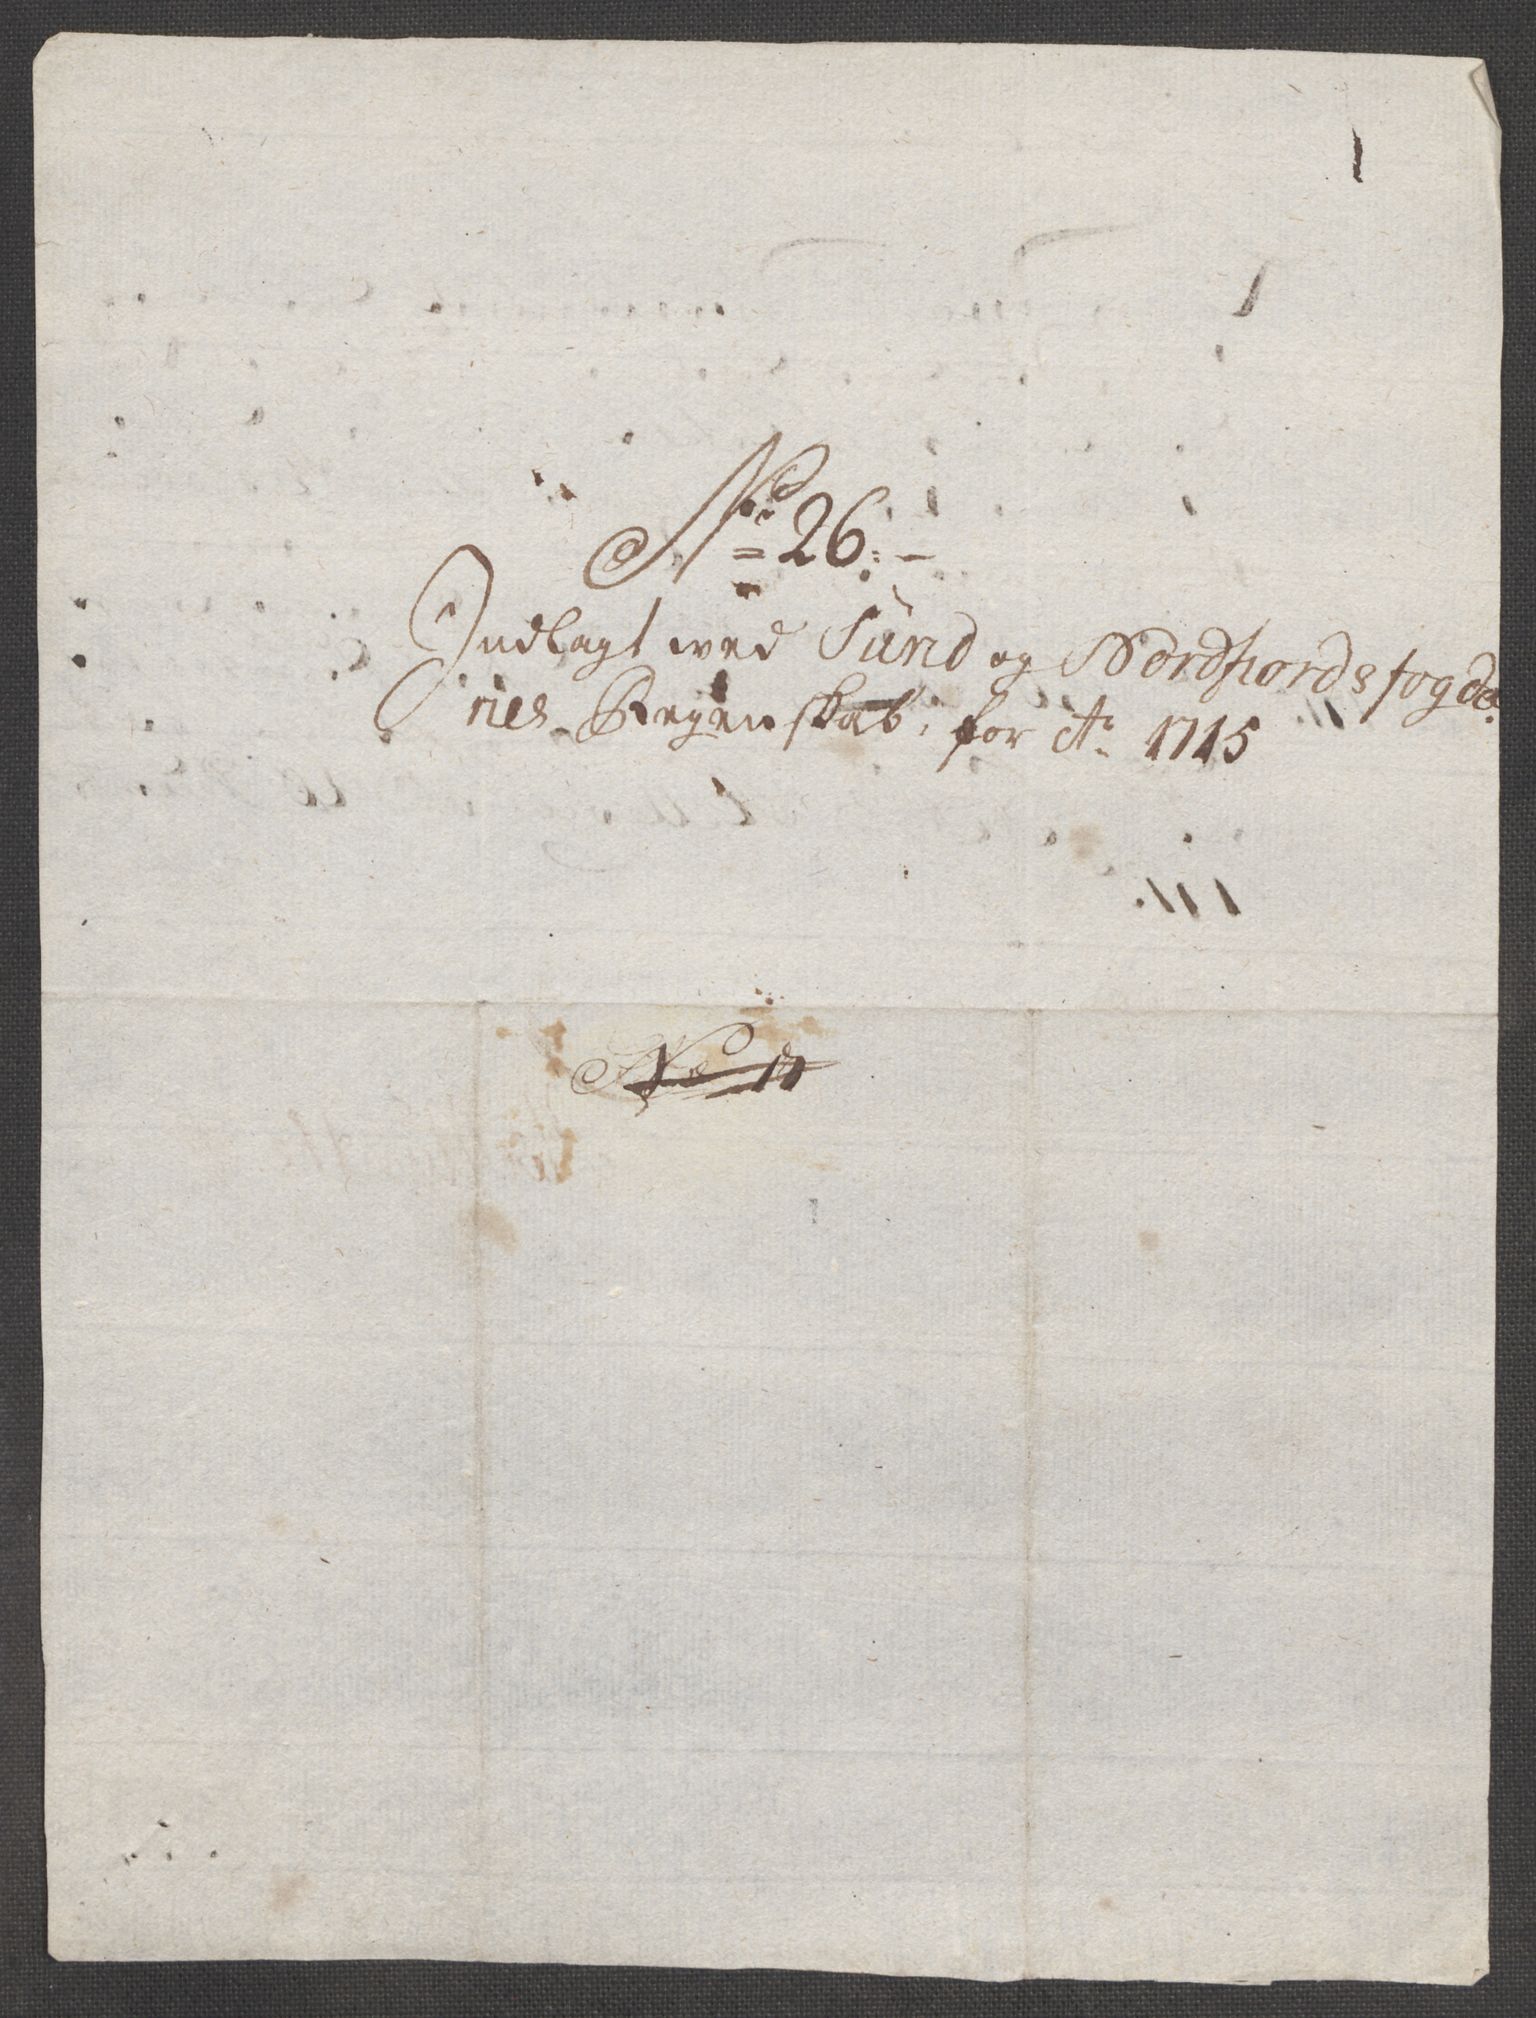 No 26.
Indlagt wed Sünd og Nordfiords fogde
ries Regenskab, for Ao 1715
No 10